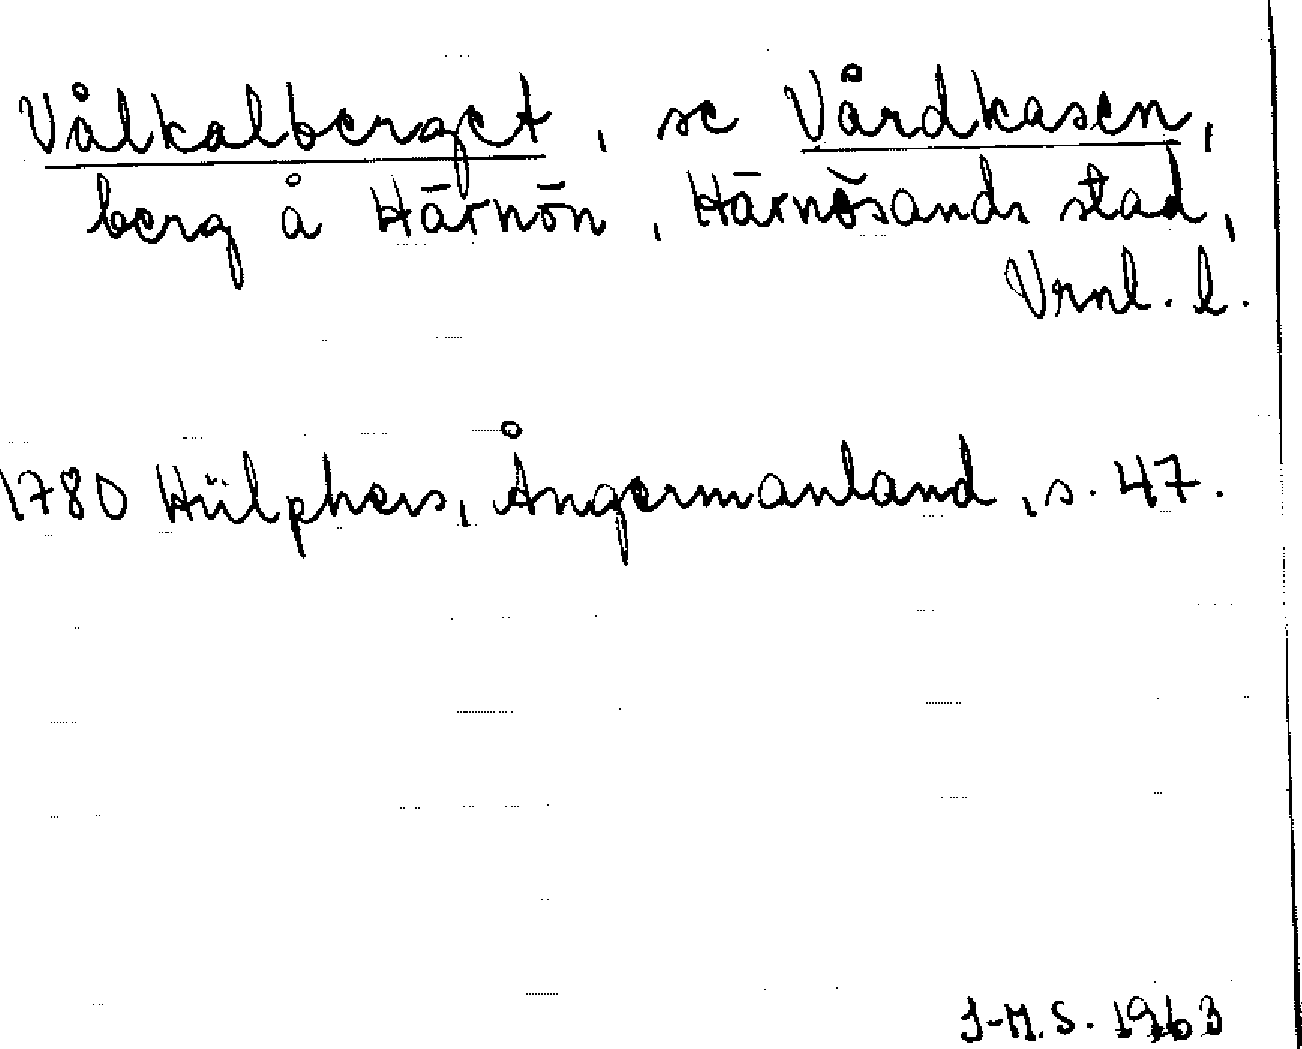 Vålkalberget, se Vårdkasen,
berg å Härnön, Härnösands stad,
Vrnl. l.
1780 Hülphers, Ångermanland, s. 47.
J-M.S. 1963